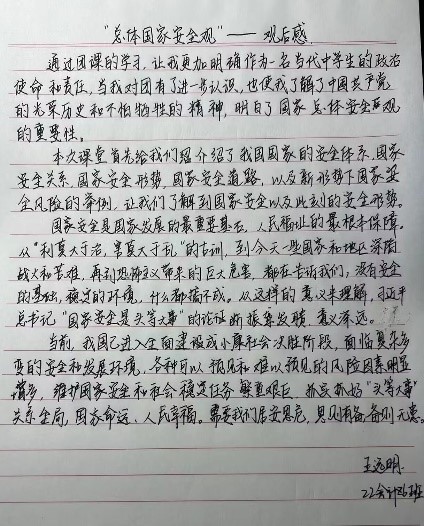 “总体国家安全观”——观后感
通过团课的学习，让我更加明确作为一名当代中学生的政治
使命和责任，当我对团有了进一步认识，也使我了解了中国共产党
的光荣历史和不怕牺牲的精神，明白了国家总体安全观
的重要性。
本次课堂首先给我们介绍了我国国家的安全体系、国家
安全关系、国家安全形势、国家安全道路，以及新形势下国家安
全风险的举例，让我们了解到国家安全以及此刻的安全形势。
国家安全是国家发展的最重要基石，人民福祉的最根本保障。
从“利莫大于治，害莫大于乱”的古训，到今天一些国家和地区深陷
战火和苦难，再到恐怖主义带来的巨大危害，都在告诉我们，没有安全
的基础，稳定的环境，什么都搞不成。从这样的意义来理解，习近平
总书记“国家安全是头等大事”的论断振聋发聩，意义深远。
当前，我国已进入全面建设成小康社会决胜阶段，面临复杂多
变的安全和发展环境，各种可以预见和难以预见的风险因素明显
增多，维护国家安全和社会稳定任务繁重艰巨，抓实抓好“头等大事”
关系全局，国家命运、人民幸福。需要我们居安思危，思则有备，备则无患。
王远明
22会计26班